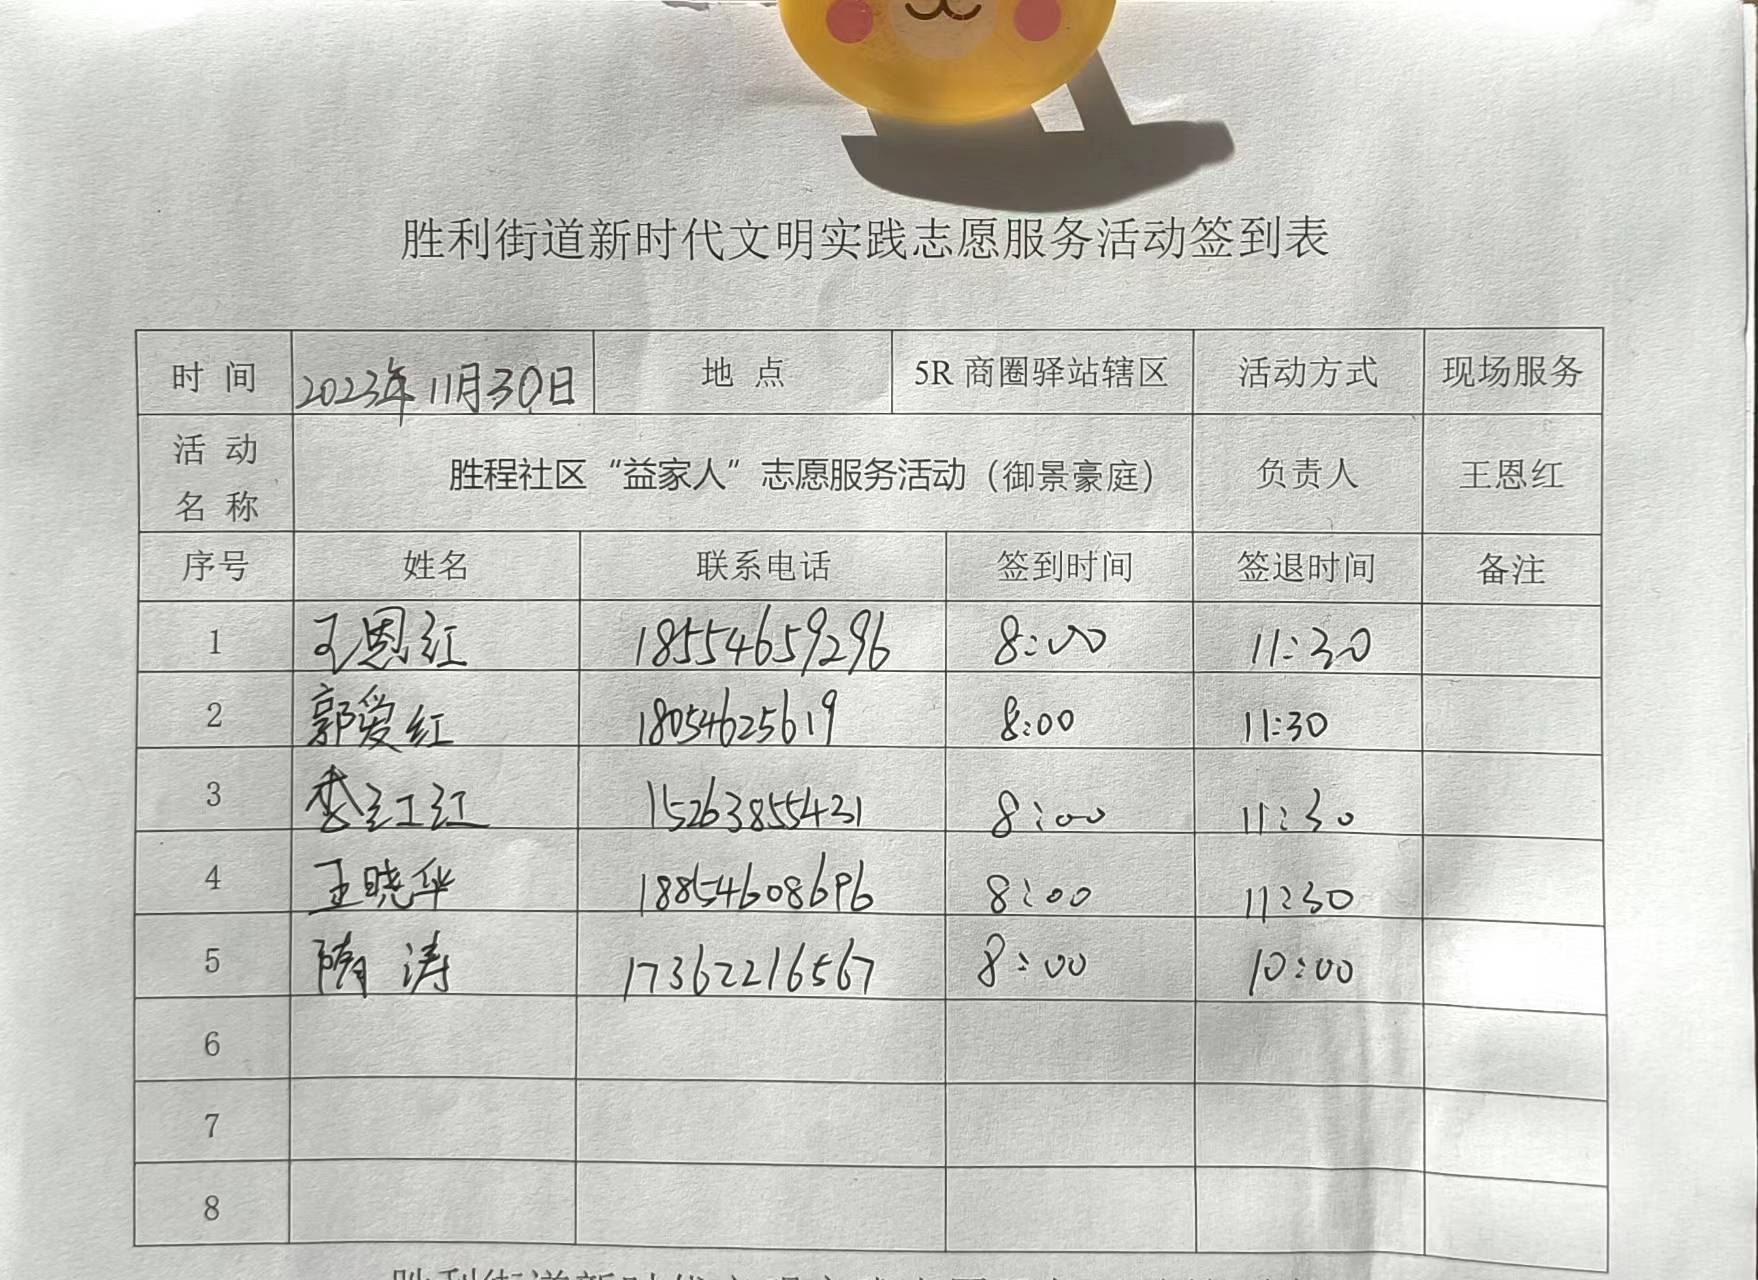 胜利街道新时代文明实践志愿服务活动签到表
时 间 2023年11月30日 地 点 5R商圈驿站辖区 活动方式 现场服务
活 动 名 称 胜程社区“益家人”志愿服务活动（御景豪庭） 负责人 王恩红
序号 姓名 联系电话 签到时间 签退时间 备注
1 王恩红 18554659296 8:00 11:30
2 郭爱红 18054625619 8:00 11:30
3 李红红 15263855421 8:00 11:30
4 王晓华 18854608696 8:00 11:30
5 隋涛 17362216567 8:00 10:00
6
7
8